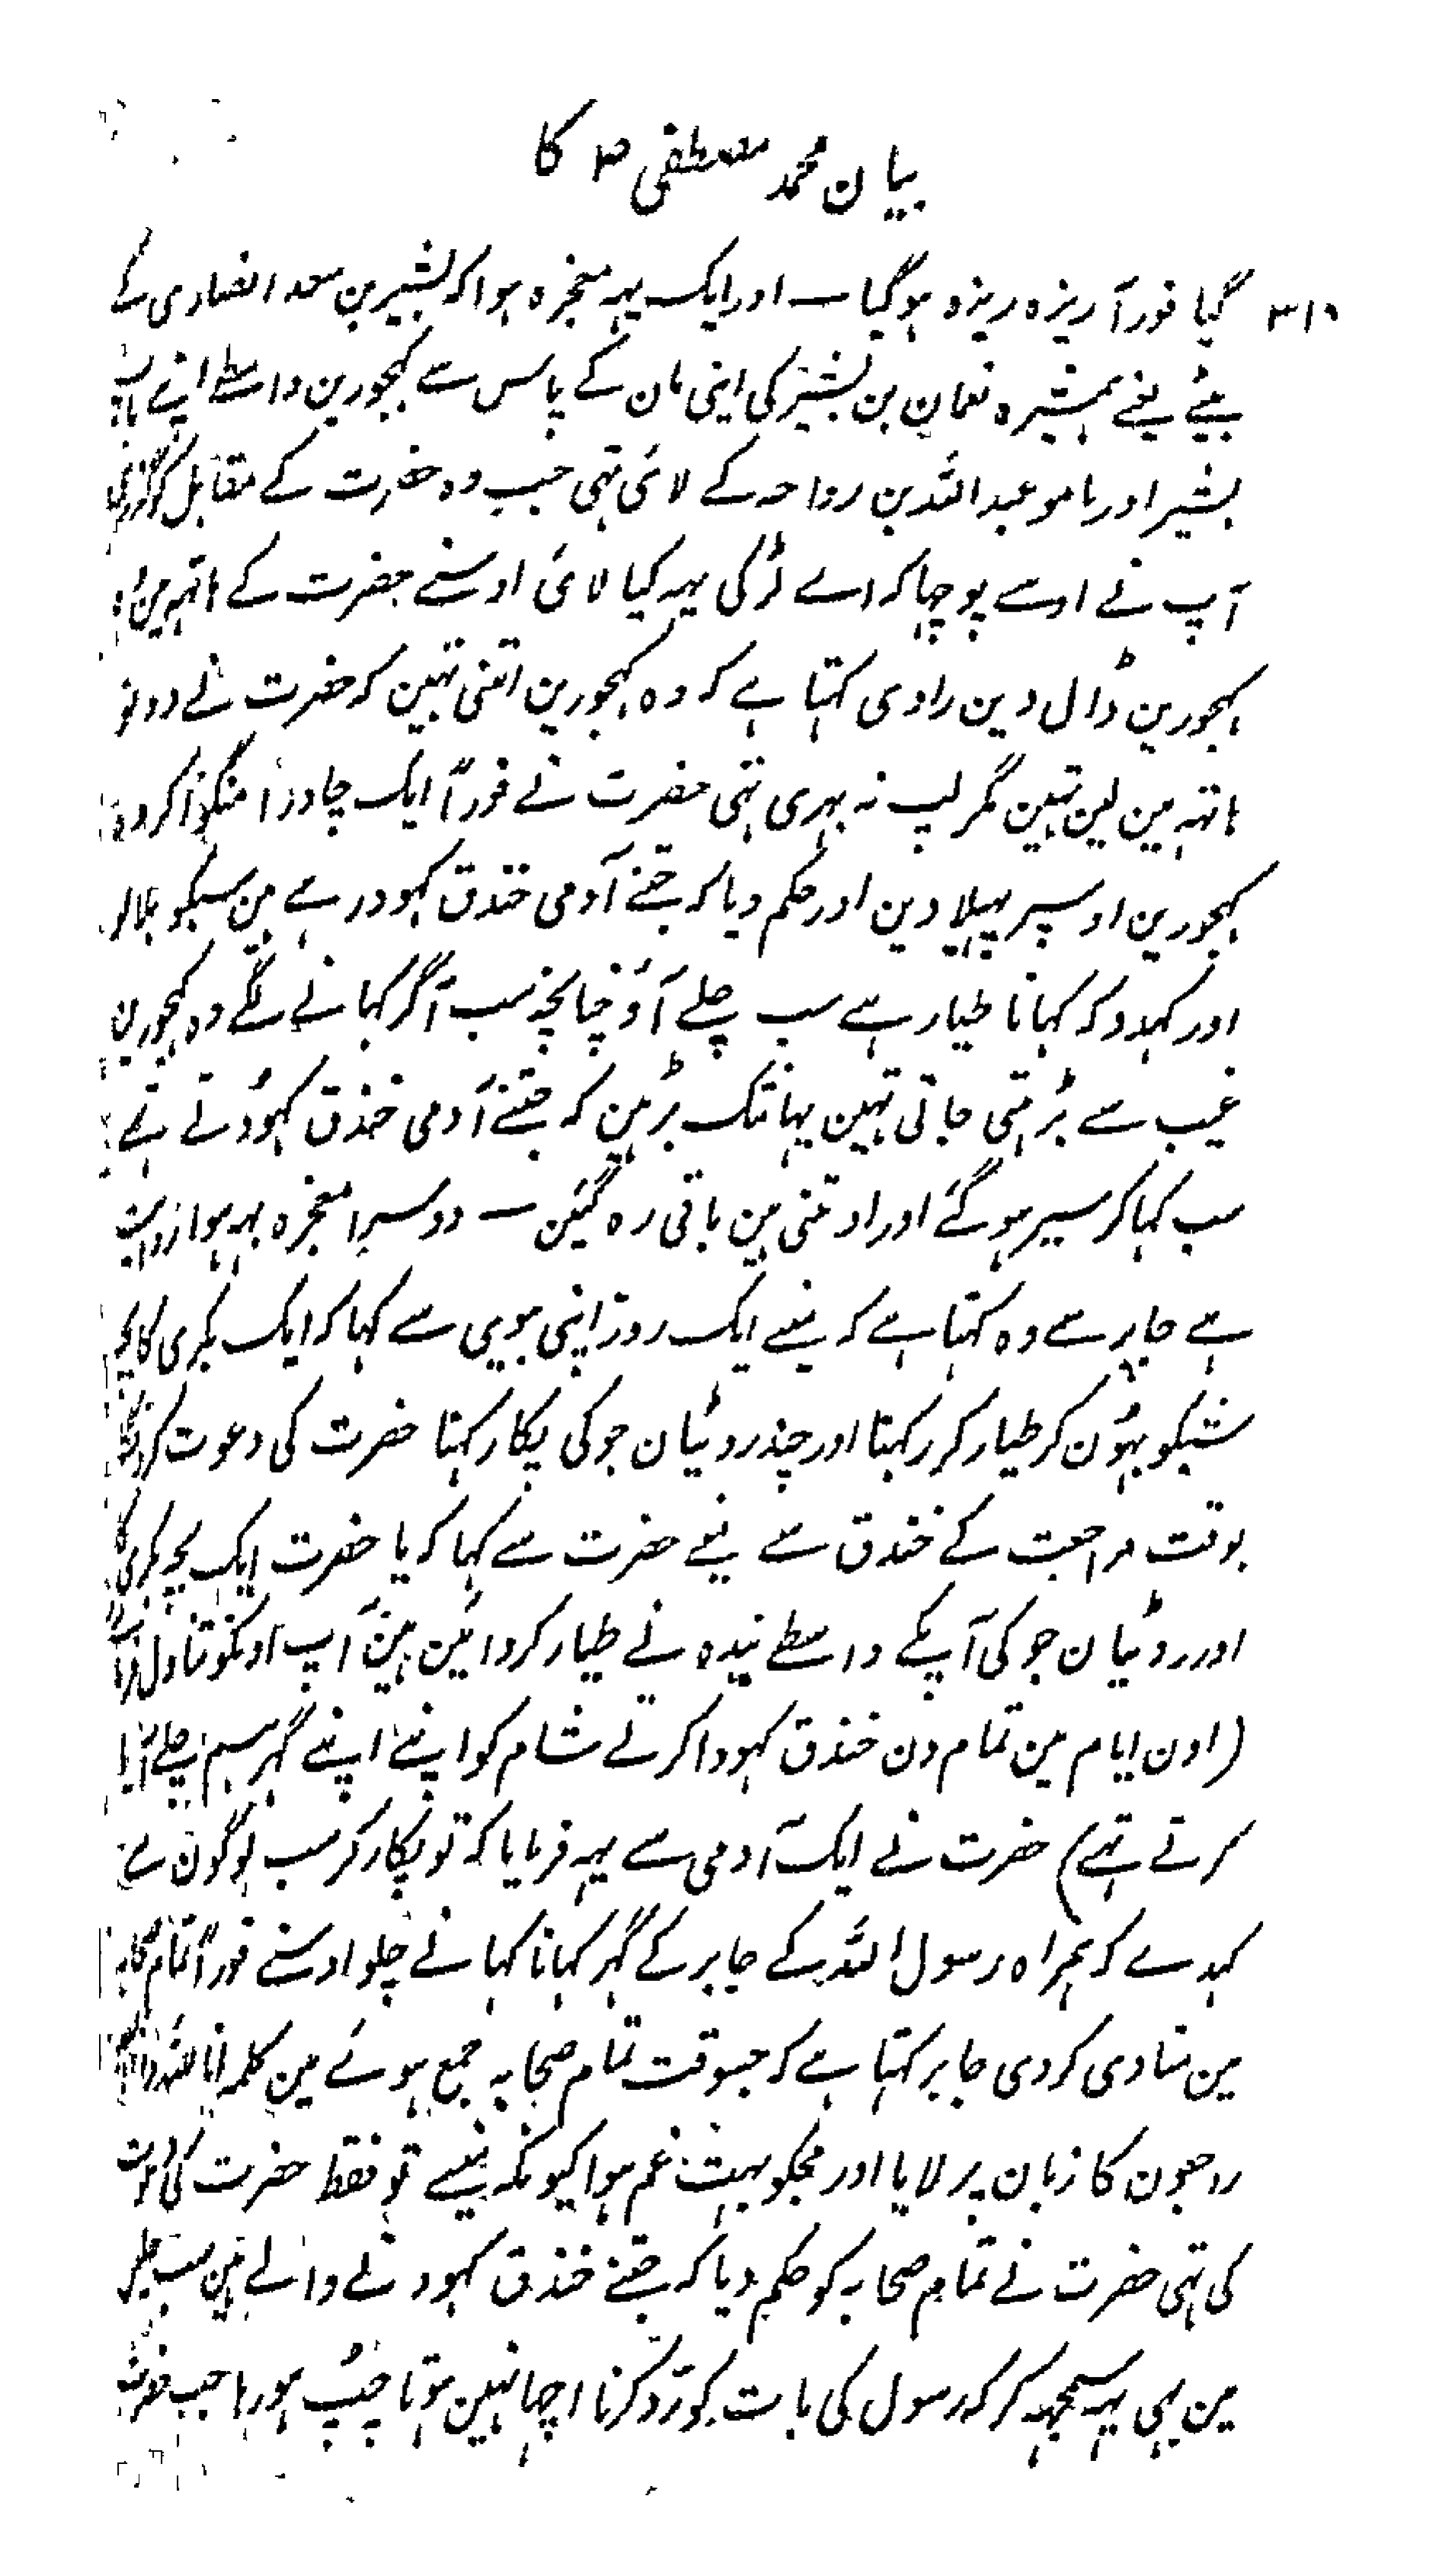 بیان محمد مصطفی ص کا
۳۱۶ گیا فوراً ریزہ ریزہ ہوگیا ۔ اور ایک یہہ معجزہ ہوا کہ بشیر بن سعد انصاری کے
بیٹے یعنے ہمشیرہ نعمان بن بشیر کی اپنی مان کے پاس سے کہجورین واسطے اپنے باپ
بشیر اور مامو عبداللہ بن رواحہ کے لائی تہی جب وہ حضرت کے مقابل ہوکر گزری
آپ نے اوسے پوچہا کہ اے لڑکی یہہ کیا لائی اوسنے حضرت کے ہاتہہ مین وہ
کہجورین ڈال دین راوی کہتا ہے کہ وہ کہجورین اتنی تہین کہ حضرت نے دونو
ہاتہہ مین لین تہین مگر لپ نہ بہری تہی حضرت نے فوراً ایک چادرا منگوا کر وہ
کہجورین اوسپر پہیلا دین اور حکم دیا کہ جتنے آدمی خندق کہود رہے ہین سبکو بلا لو
اور کہدو کہ کہانا طیار ہے سب چلے آؤ چنانچہ سب آکر کہانے لگے وہ کہجورین
غیب سے بڑہتی جاتی تہین یہانتک بڑہین کہ جتنے آدمی خندق کہودتے تہے
سب کہاکر سیر ہوگئے اور اوتنی ہین باقی رہ گئین ۔ دوسرا معجزہ یہہ ہوا روایت
ہے جابر سے وہ کہتا ہے کہ مینے ایک روز اپنی بیوی سے کہا کہ ایک بکری کا بچہ
شبکو بہون کر طیار کر رکہنا اور چند روٹیان جو کی پکا رکہنا حضرت کی دعوت کرونگا
بوقت مراجعت کے خندق سے مینے حضرت سے کہا کہ یا حضرت ایک بچہ بکری کا
اور روٹیان جو کی آپکے واسطے بندہ نے طیار کروائین ہین آپ اونکو تناول فرمائیے
(اون ایام مین تمام دن خندق کہودا کرتے شام کو اپنے اپنے گہر ہم چلے آیا
کرتے تہے) حضرت نے ایک آدمی سے یہہ فرمایا کہ تو پکار کر سب لوگون سے
کہدے کہ ہمراہ رسول اللہ کے جابر کے گہر کہانا کہانے چلو اوسنے فوراً تمام
مین منادی کردی جابر کہتا ہے کہ جسوقت تمام صحابہ جمع ہوئے مین کلمہ انا للہ وانا الیہ
راجعون کا زبان پر لایا اور مجکو بہت غم ہوا کیونکہ مینے تو فقط حضرت کی دعوت
کی تہی حضرت نے تمام صحابہ کو حکم دیا کہ جتنے خندق کہودنے والے ہین سب چلو
مین بہی یہہ سمجہہ کر کہ رسول کی بات کو رد کرنا اچہا نہین ہوتا چپ ہو رہا جب حضرت